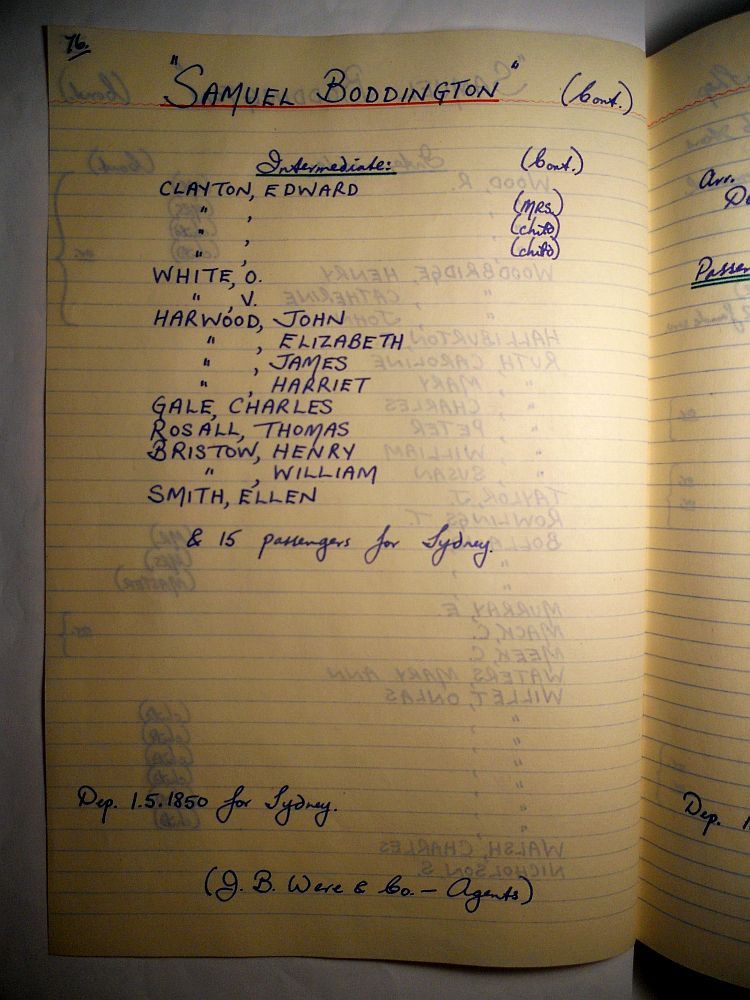 76.
"SAMUEL BODDINGTON" (Cont.)
Intermediate: (Cont.)
CLAYTON, EDWARD
" , (MRS.)
" , (child)
" , (child)
WHITE, O.
" , V.
HARWOOD, JOHN
" , ELIZABETH
" , JAMES
" , HARRIET
GALE, CHARLES
ROSALL, THOMAS
BRISTOW, HENRY
" , WILLIAM
SMITH, ELLEN
& 15 passengers for Sydney.
Dep. 1.5.1850 for Sydney.
(J. B. Were & Co. — Agents)
Arr.
Passen
Dep. 1